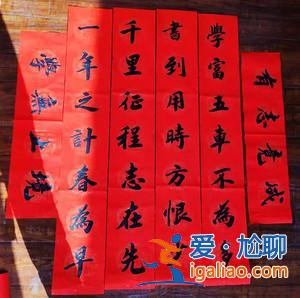 有志竟成
學富五車不為多
書到用時方恨少
千里征程志在先
一年之計春為早
學無止境
爱·尬聊
igaliao.com